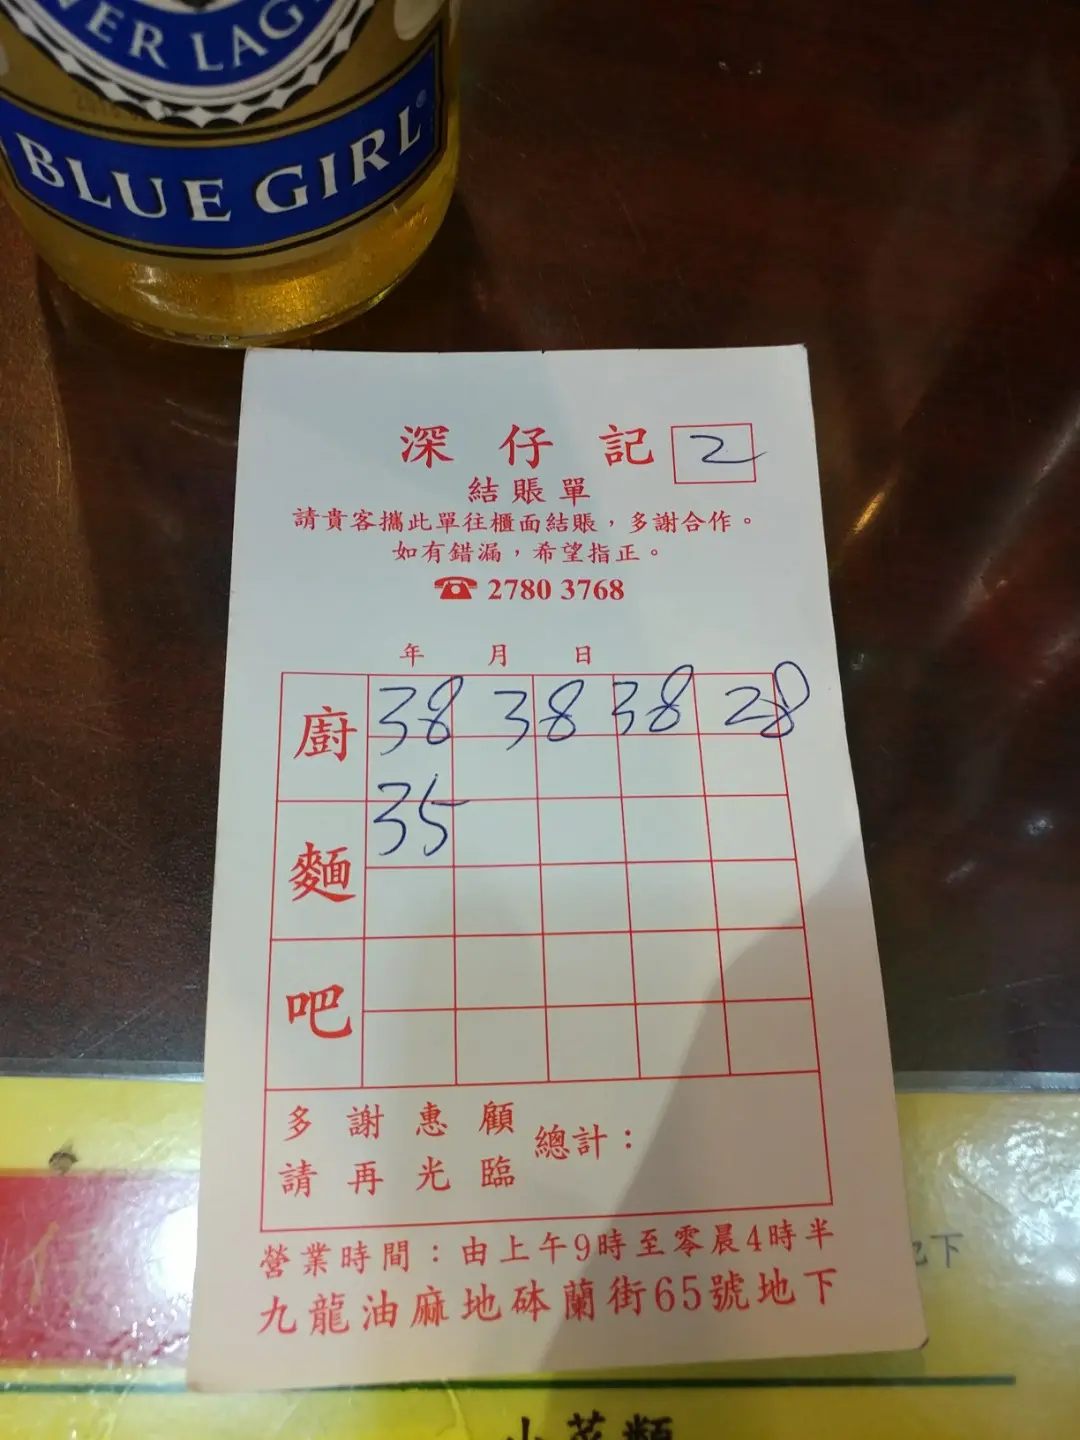 VER LAG
BLUE GIRL®
深仔記 2
結賬單
請貴客攜此單往櫃面結賬，多謝合作。
如有錯漏，希望指正。
☎ 2780 3768
年 月 日
廚 38 38 38 28
麵 35
吧
多謝惠顧
請再光臨
總計：
營業時間：由上午9時至零晨4時半
九龍油麻地砵蘭街65號地下
地下
小菜類